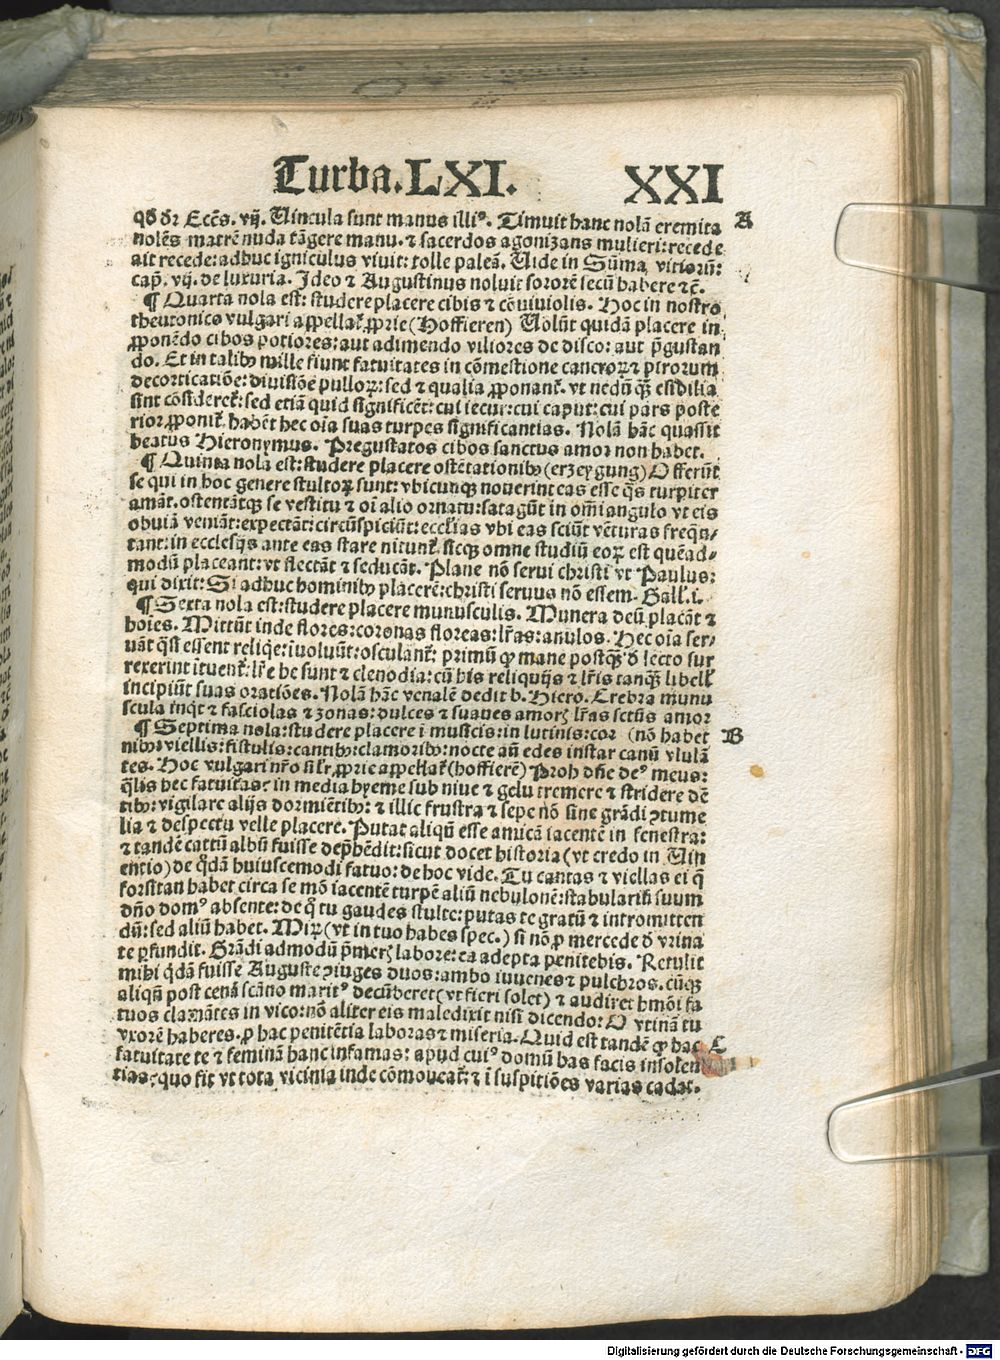 Turba. LXI. XXI
qđ dr̄ Ecc̄s. vij. Vincula sunt manus illi⁹. Timuit hanc nolā eremita A
nolēs matrē nuda tāgere manu. ⁊ sacerdos agonizans mulieri: recede
ait recede: adhuc igniculus viuit: tolle paleā. Vide in Sūma vitiorū:
cap. vij. de luxuria. Ideo ⁊ Augustinus noluit sororē secū habere ⁊c̄.
¶ Quarta nola est: studere placere cibis ⁊ cōuiuiolis. Hoc in nostro
theutonico vulgari appellat̄ ꝓprie (Hoffieren) Volūt quidā placere in
ꝓponēdo cibos potiores: aut adimendo viliores de disco: aut p̄gustan
do. Et in talibꝰ mille fiunt fatuitates in cōmestione cancroꝝ ⁊ pirorum
decorticatiōe: diuisiōe pulloꝝ: sed ⁊ qualia ꝓponant̄. vt nedū q̄ꝫ esibilia
sint cōsideret̄: sed etiā quid significēt: cui iecur: cui caput: cui pars poste
rior ꝓponit̄. habēt hec oīa suas turpes significantias. Nolā hāc quassit
beatus Hieronymus. Pregustatos cibos sanctus amor non habet.
¶ Quinta nola est: studere placere ostētationibꝰ (erzeygung) Offerūt
se qui in hoc genere stultoꝝ sunt: vbicunqꝫ nouerint eas esse q̄s turpiter
amāt. ostentātqꝫ se vestitu ⁊ oī alio ornatu: satagūt in om̄i angulo vt eis
obuiā veniāt: expectāt: circūspiciūt: ecclīas vbi eas sciūt vēturas freq̄n-
tant: in ecclesijs ante eas stare nitunt̄. sicqꝫ omne studiū eoꝝ est quēad-
modū placeant: vt flectāt ⁊ seducāt. Plane nō serui christi vt Paulus:
qui dixit: Si adhuc hominibꝰ placerē: christi seruus nō essem. Gall̄. i.
¶ Sexta nola est: studere placere munusculis. Munera deū placāt ⁊
hoīes. Mittūt inde flores: coronas floreas: lr̄as: anulos. Hec oīa ser-
uāt q̄si essent reliqe: īuoluūt: osculant̄: primū qꝫ mane postq̄ꝫ d̄ lecto sur
rexerint ituent̄: lr̄e he sunt ⁊ clenodia: cū his reliquijs ⁊ lr̄is tanq̄ꝫ libell̄
incipiūt suas oratiōes. Nolā hāc venalē dedit b. Hiero. Crebra munu
scula inq̄t ⁊ fasciolas ⁊ zonas: dulces ⁊ suaues amoꝝ lr̄as sct̄us amor
¶ Septima nola: studere placere ī musicis: in lutinis: cor (nō habet B
nibꝰ: viellis: fistulis: cantibꝰ: clamoribꝰ: nocte aū edes instar canū vlulā
tes. Hoc vulgari nr̄o sil̄r ꝓprie appellat̄ (hoffierē) Proh dn̄e de⁹ meus:
q̄lis hec fatuitas? in media hyeme sub niue ⁊ gelu tremere ⁊ stridere dē
tibꝰ: vigilare alijs dormiētibꝰ: ⁊ illic frustra ⁊ sepe nō sine grādi ꝯtume
lia ⁊ despectu velle placere. Putat aliqn̄ esse amicā iacentē in fenestra:
⁊ tandē cattū albū fuisse dep̄hēdit: sicut docet historia (vt credo in Vin
centio) de q̄dā huiuscemodi fatuo: de hoc vide. Tu cantas ⁊ viellas ei q̄
forsitan habet circa se mō iacentē turpē aliū nebulonē: stabulariū suum
dn̄o dom⁹ absente: de q̄ tu gaudes stulte: putas te gratū ⁊ intromitten
dū: sed aliū habet. Miꝝ (vt in tuo habes spec.) si nō ꝓ mercede d̄ vrina
te ꝑfundit. Grādi admodū p̄meris labore: ea adepta penitebis. Retulit
mihi q̄dā fuisse Auguste ꝯiuges duos: ambo iuuenes ⁊ pulchros. cūqꝫ
aliqn̄ post cenā scāno marit⁹ decūberet (vt fieri solet) ⁊ audiret hmōi fa
tuos clamātes in vico: nō aliter eis maledixit nisi dicendo: O vtinā tu
vxorē haberes. ꝓ hac penitētia laboras ⁊ miseria. Quid est tandē qꝫ hac C
fatuitate te ⁊ feminā hanc infamas: apud cui⁹ domū has facis insolen
tias: quo fit vt tota vicinia inde cōmoueat̄: ⁊ ī suspitiōes varias cadat.
Digitalisierung gefördert durch die Deutsche Forschungsgemeinschaft - DFG